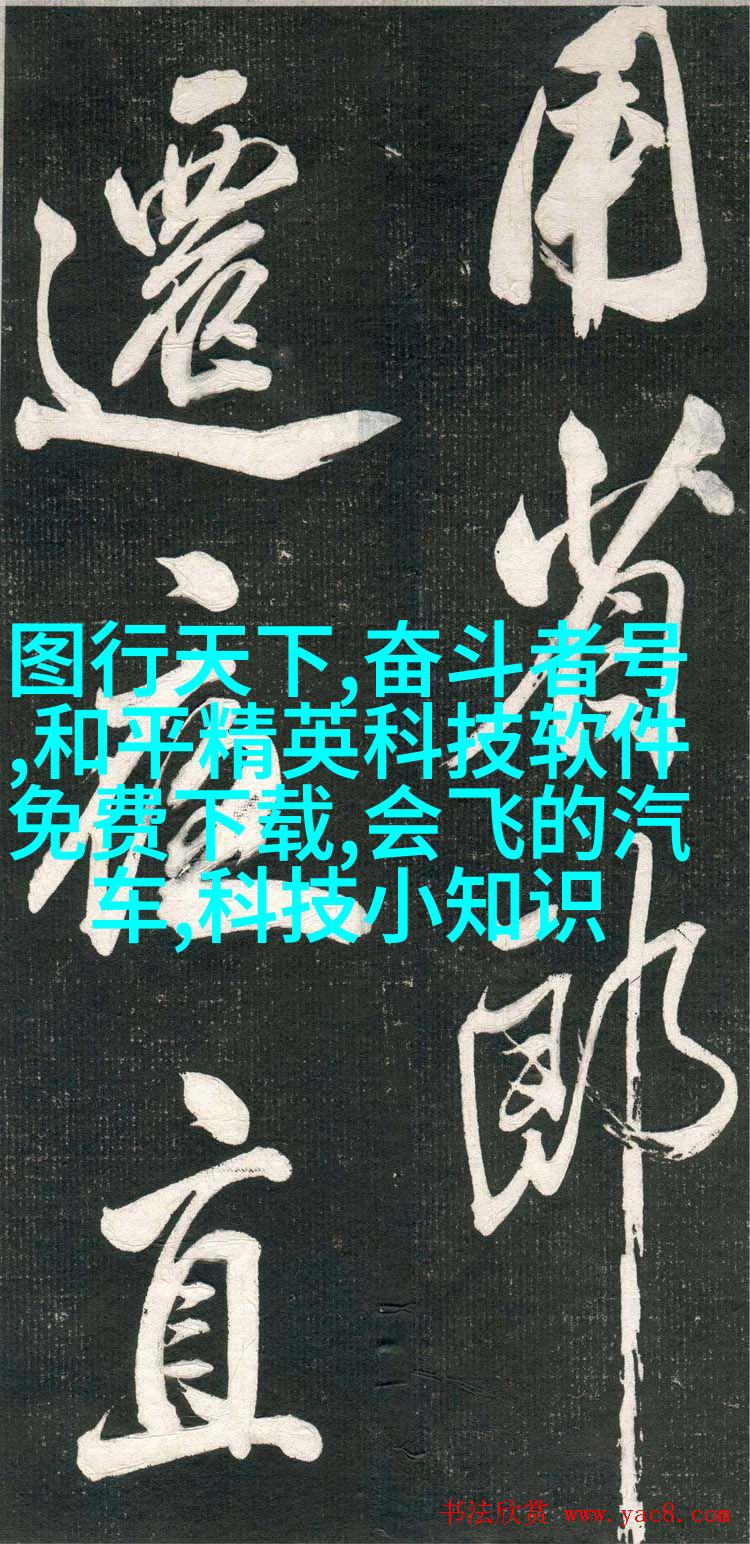 用省郎
還直
图行天下,奋斗者号
,和平精英科技软件
免费下载,会飞的汽
车,科技小知识
书法欣赏 www.yac8.com